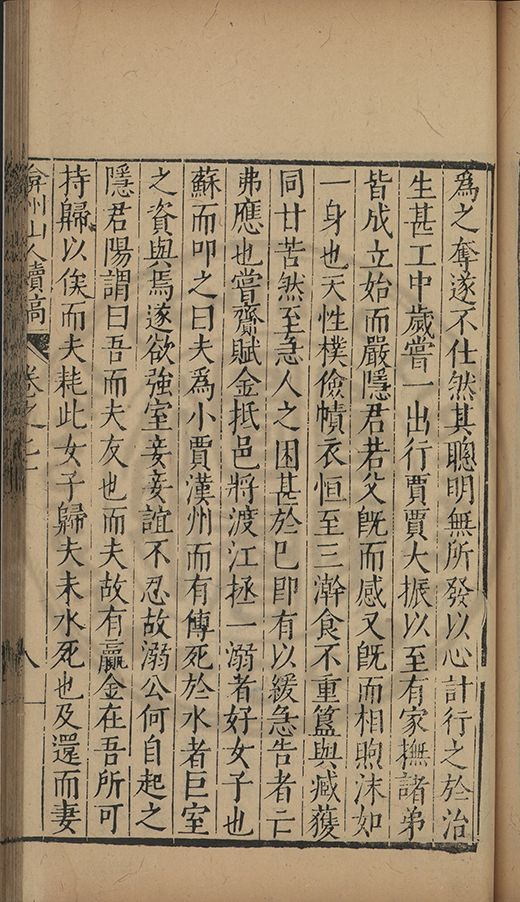 爲之奪遂不仕然其聰明無所發以心計行之於治
生甚工中歲嘗一出行賈賈大振以至有家撫諸弟
皆成立始而嚴隱君若父既而感又既而相呴沫如
一身也天性樸儉幘衣恒至三澣食不重簋與臧獲
同甘苦然至急人之困甚於已卽有以緩急告者亡
弗應也嘗齎賦金抵邑將渡江拯一溺者好女子也
蘇而叩之曰夫爲小賈漢州而有傳死於水者巨室
之資與焉遂欲強室妾妾誼不忍故溺公何自起之
隱君陽謂曰吾而夫友也而夫故有贏金在吾所可
持歸以俟而夫耗此女子歸夫未水死也及還而妻
弇州山人續稿
卷之
八